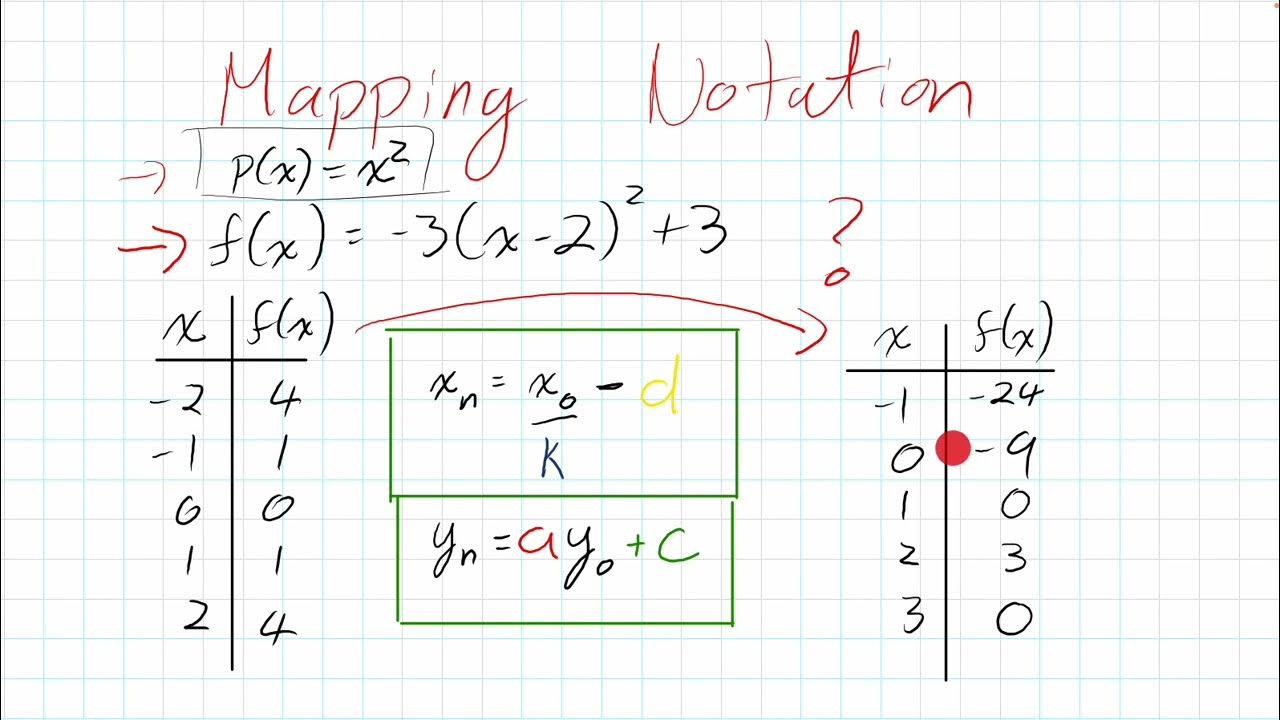 Mapping Notation
→ p(x) = x²
→ f(x) = -3(x-2)² + 3 ?
x | f(x)
-2 | 4
-1 | 1
0 | 0
1 | 1
2 | 4
xₙ = x₀/k - d
yₙ = ay₀ + c
x | f(x)
-1 | -24
0 | -9
1 | 0
2 | 3
3 | 0